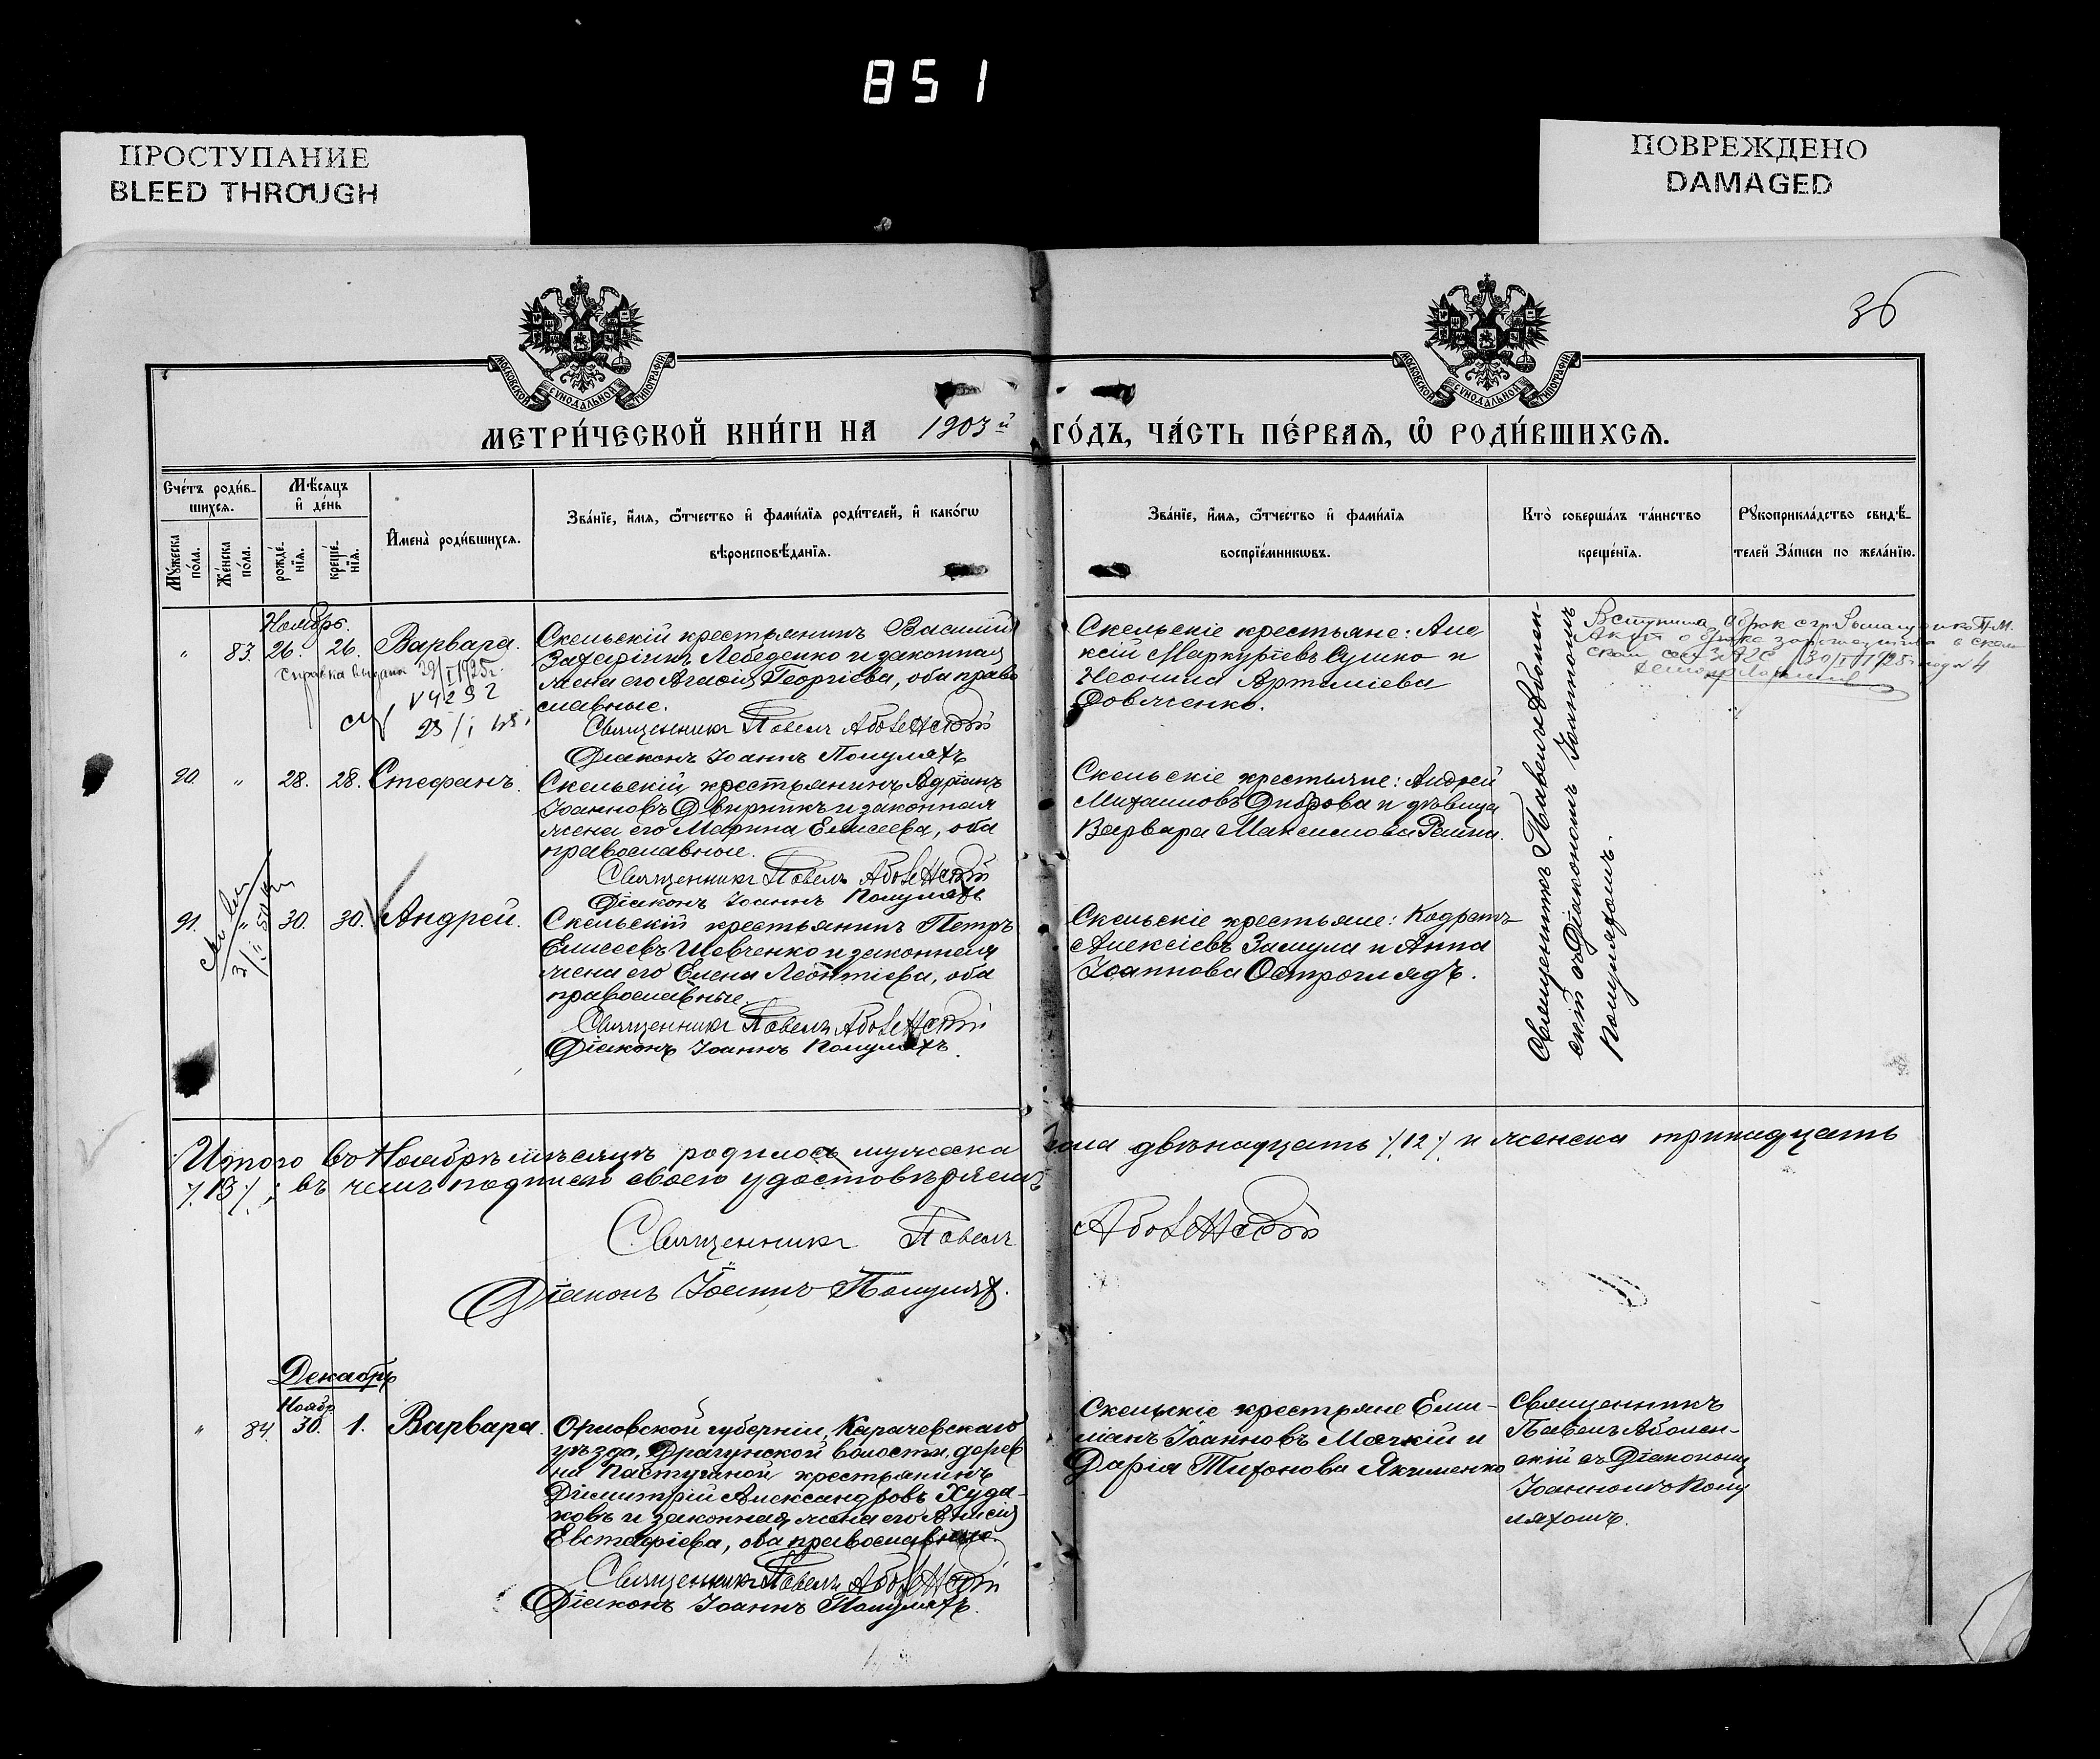 851
ПРОСТУПАНИЕ
BLEED THROUGH
ПОВРЕЖДЕНО
DAMAGED
36
МОСКОВСКОЙ СѴНОДАЛЬНОЙ ТИПОГРАФІИ
МОСКОВСКОЙ СѴНОДАЛЬНОЙ ТИПОГРАФІИ
МЕТРИ́ЧЕСКОЙ КНИ́ГИ НА 1903й ГО́ДЪ, ЧА́СТЬ ПЕ́РВАЯ, Ѡ҆ РОДИ́ВШИХСЯ.
Сче́тъ роди́в-
шихся.
Мꙋ́жеска по́ла.
Же́нска по́ла.
Мѣ́сяцъ
и҆ де́нь
рожде́-
нїя.
креще́-
нїя.
И҆мена̀ роди́вшихся.
Зва́нїе, и҆́мя, ѻ҆́тчество и҆ фами́лїя роди́телей, и҆ како́гѡ
вѣроисповѣ́данїя.
Зва́нїе, и҆́мя, ѻ҆́тчество и҆ фами́лїя
воспрїе́мникѡвъ.
Кто̀ соверша́лъ та́инство
креще́нїя.
Рꙋкоприкла́дство свидѣ́-
телей за́писи по жела́нїю.
Ноябрь.
" 83. 26. 26. Варвара.
Справка выдана 29/I 1925г.
V4292
Скельскій крестьянинъ Василій
Захаріинъ Лебеденко и законная
жена его Агафія Георгіева, оба право
славные.
Священникъ Павелъ Аболенскій
Діаконъ Іоаннъ Полуляхъ
Скельскіе крестьяне: Але
ксій Маркуріевъ Сушко и
Неонила Артиміева
Довженко.
Священникъ Павелъ Аболен-
скій съ Діакономъ Іоанномъ
Полуляхомъ.
90. " 28. 28. Стефанъ.
Скельскій крестьянинъ Адріанъ
Іоанновъ Дворникъ и законная
жена его Марина Елисеева, оба
православные.
Священникъ Павелъ Аболенскій
Діаконъ Іоаннъ Полуляхъ
Скельскіе крестьяне: Андрей
Михаиловъ Диброва и дѣвица
Варвара Максимова
91. " 30. 30. Андрей.
Скельскій крестьянинъ Петръ
Елисеевъ Шевченко и законная
жена его Елена Леонтіева, оба
православные.
Священникъ Павелъ Аболенскій
Діаконъ Іоаннъ Полуляхъ.
Скельскіе крестьяне: Кодратъ
Алексіевъ Замула и Анна
Іоаннова Остроглядъ.
Итого въ Ноябрѣ мѣсяцѣ родилось мужеска пола двѣнадцать /.12./ и женска тринадцать
/.13./; въ чемъ подписью своею удостовѣряемъ
Священникъ Павелъ Аболенскій
Діаконъ Іоаннъ Полулях.
Декабрь
Ноябр
" 84. 30. 1. Варвара.
Орловской губерніи, Карачевскаго
уѣзда, Драгунской волости, дерев
ни Пастушной крестьянинъ
Димитрій Александровъ Худа-
ковъ и законная жена его Анисія
Евстафіева, оба православные.
Священникъ Павелъ Аболенскій
Діаконъ Іоаннъ Полуляхъ.
Скельскіе крестьяне Еми-
ліанъ Іоанновъ Мягкій и
Дарія Тихонова Якименко
Священникъ
Павелъ Аболен-
скій съ Діакономъ
Іоанномъ Полу
ляхомъ.